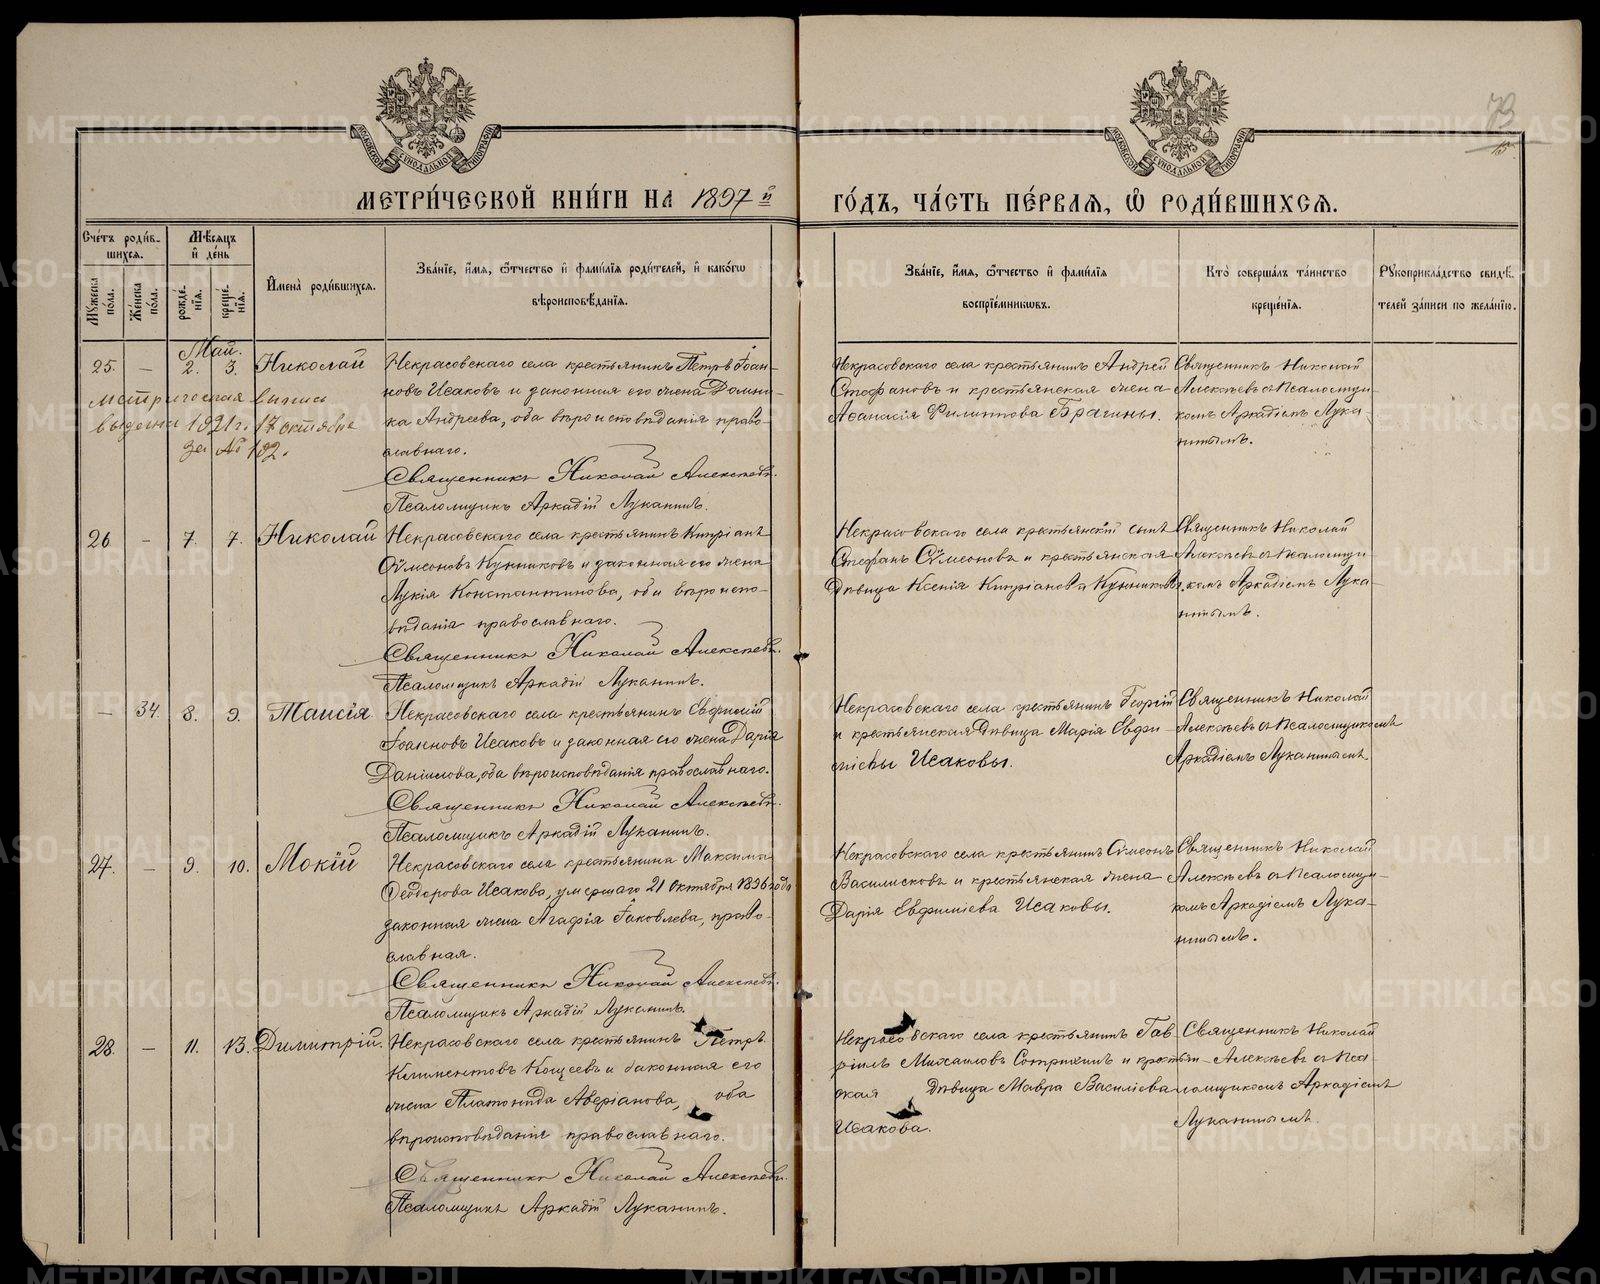 МЕТРИ́ЧЕСКОЙ КНИ́ГИ НА 1897 й ГО́ДЪ, ЧА́СТЬ ПЕ́РВАѦ, Ѡ҆ РОДИ́ВШИХСѦ.
Сче́тъ роди́в-
шихсѧ.
Мꙋжеска по́ла.
Же́нска по́ла.
Мѣ́сѧцъ
и҆ де́нь
рожде́-
нїѧ.
креще́-
нїѧ.
И҆мена̀ роди́вшихсѧ.
Зва́нїе, и҆́мѧ, ѻ҆́тчество и҆ фами́лїѧ роди́телей, и҆ како́гѡ
вѣроисповѣ́данїѧ.
Зва́нїе, и҆́мѧ, ѻ҆́тчество и҆ фами́лїѧ
воспрїе́мникѡвъ.
Кто̀ соверша́лъ та́инство
креще́нїѧ.
Рꙋкоприкла́дство свидѣ́-
телей за́писи по жела́нїю.
Май.
25. — 2. 3. Николай
Некрасовскаго села крестьянинъ Петръ Іоан-
новъ Исаковъ и законная его жена Домни-
ка Андреева, оба вѣроисповѣданія право-
славнаго.
Священникъ Николай Алексѣевъ.
Псаломщикъ Аркадій Луканинъ.
метрическая выпись
выдана 1921 г. 17 октября
за № 182.
Некрасовского села крестьянинъ Андрей
Стефановъ и крестьянская жена
Аѳанасія Филиппова Брагины.
Священникъ Николай
Алексѣевъ съ Псаломщи-
комъ Аркадіемъ Лука-
нинымъ.
26 — 7. 7. Николай
Некрасовскаго села крестьянинъ Кипріанъ
Сѵмеоновъ Кунниковъ и законная его жена
Лукія Константинова, оба вѣроиспо-
вѣданія православнаго.
Священникъ Николай Алексѣевъ.
Псаломщикъ Аркадій Луканинъ.
Некрасовскаго села крестьянскій сынъ
Стефанъ Сѵмеоновъ и крестьянская
дѣвица Ксенія Кипріанова Кунниковы.
Священникъ Николай
Алексѣевъ съ Псаломщи-
комъ Аркадіемъ Лука-
нинымъ.
— 34. 8. 9. Таисія.
Некрасовскаго села крестьянинъ Евфимій
Іоанновъ Исаковъ и законная его жена Дарія
Даніилова, оба вѣроисповѣданія православнаго.
Священникъ Николай Алексѣевъ.
Псаломщикъ Аркадій Луканинъ.
Некрасовскаго села крестьянинъ Георгій
и крестьянская дѣвица Марія Евфи-
міевы Исаковы.
Священникъ Николай
Алексѣевъ съ Псаломщикомъ
Аркадіемъ Луканинымъ.
27. — 9. 10. Мокій
Некрасовскаго села крестьянина Максима
Ѳеодорова Исакова, умершаго 21 октября 1896 года
законная жена Агафія Іаковлева, право-
славная.
Священникъ Николай Алексѣевъ.
Псаломщикъ Аркадій Луканинъ.
Некрасовскаго села крестьянинъ Сѵмеонъ
Василисковъ и крестьянская жена
Дарія Евфиміева Исаковы.
Священникъ Николай
Алексѣевъ съ Псаломщи-
комъ Аркадіемъ Лука-
нинымъ.
28. — 11. 13. Димитрій.
Некрасовскаго села крестьянинъ Петръ
Климентовъ Кощеевъ и законная его
жена Платонида Аверіанова, оба
вѣроисповѣданія православнаго.
Священникъ Николай Алексѣевъ.
Псаломщикъ Аркадій Луканинъ.
Некрасовскаго села крестьянинъ Гав-
ріилъ Михаиловъ и крестьян-
ская дѣвица Мавра Василіева
Исакова.
Священникъ Николай
Алексѣевъ съ Пса-
ломщикомъ Аркадіемъ
Луканинымъ.
METRIKI.GASO-URAL.RU